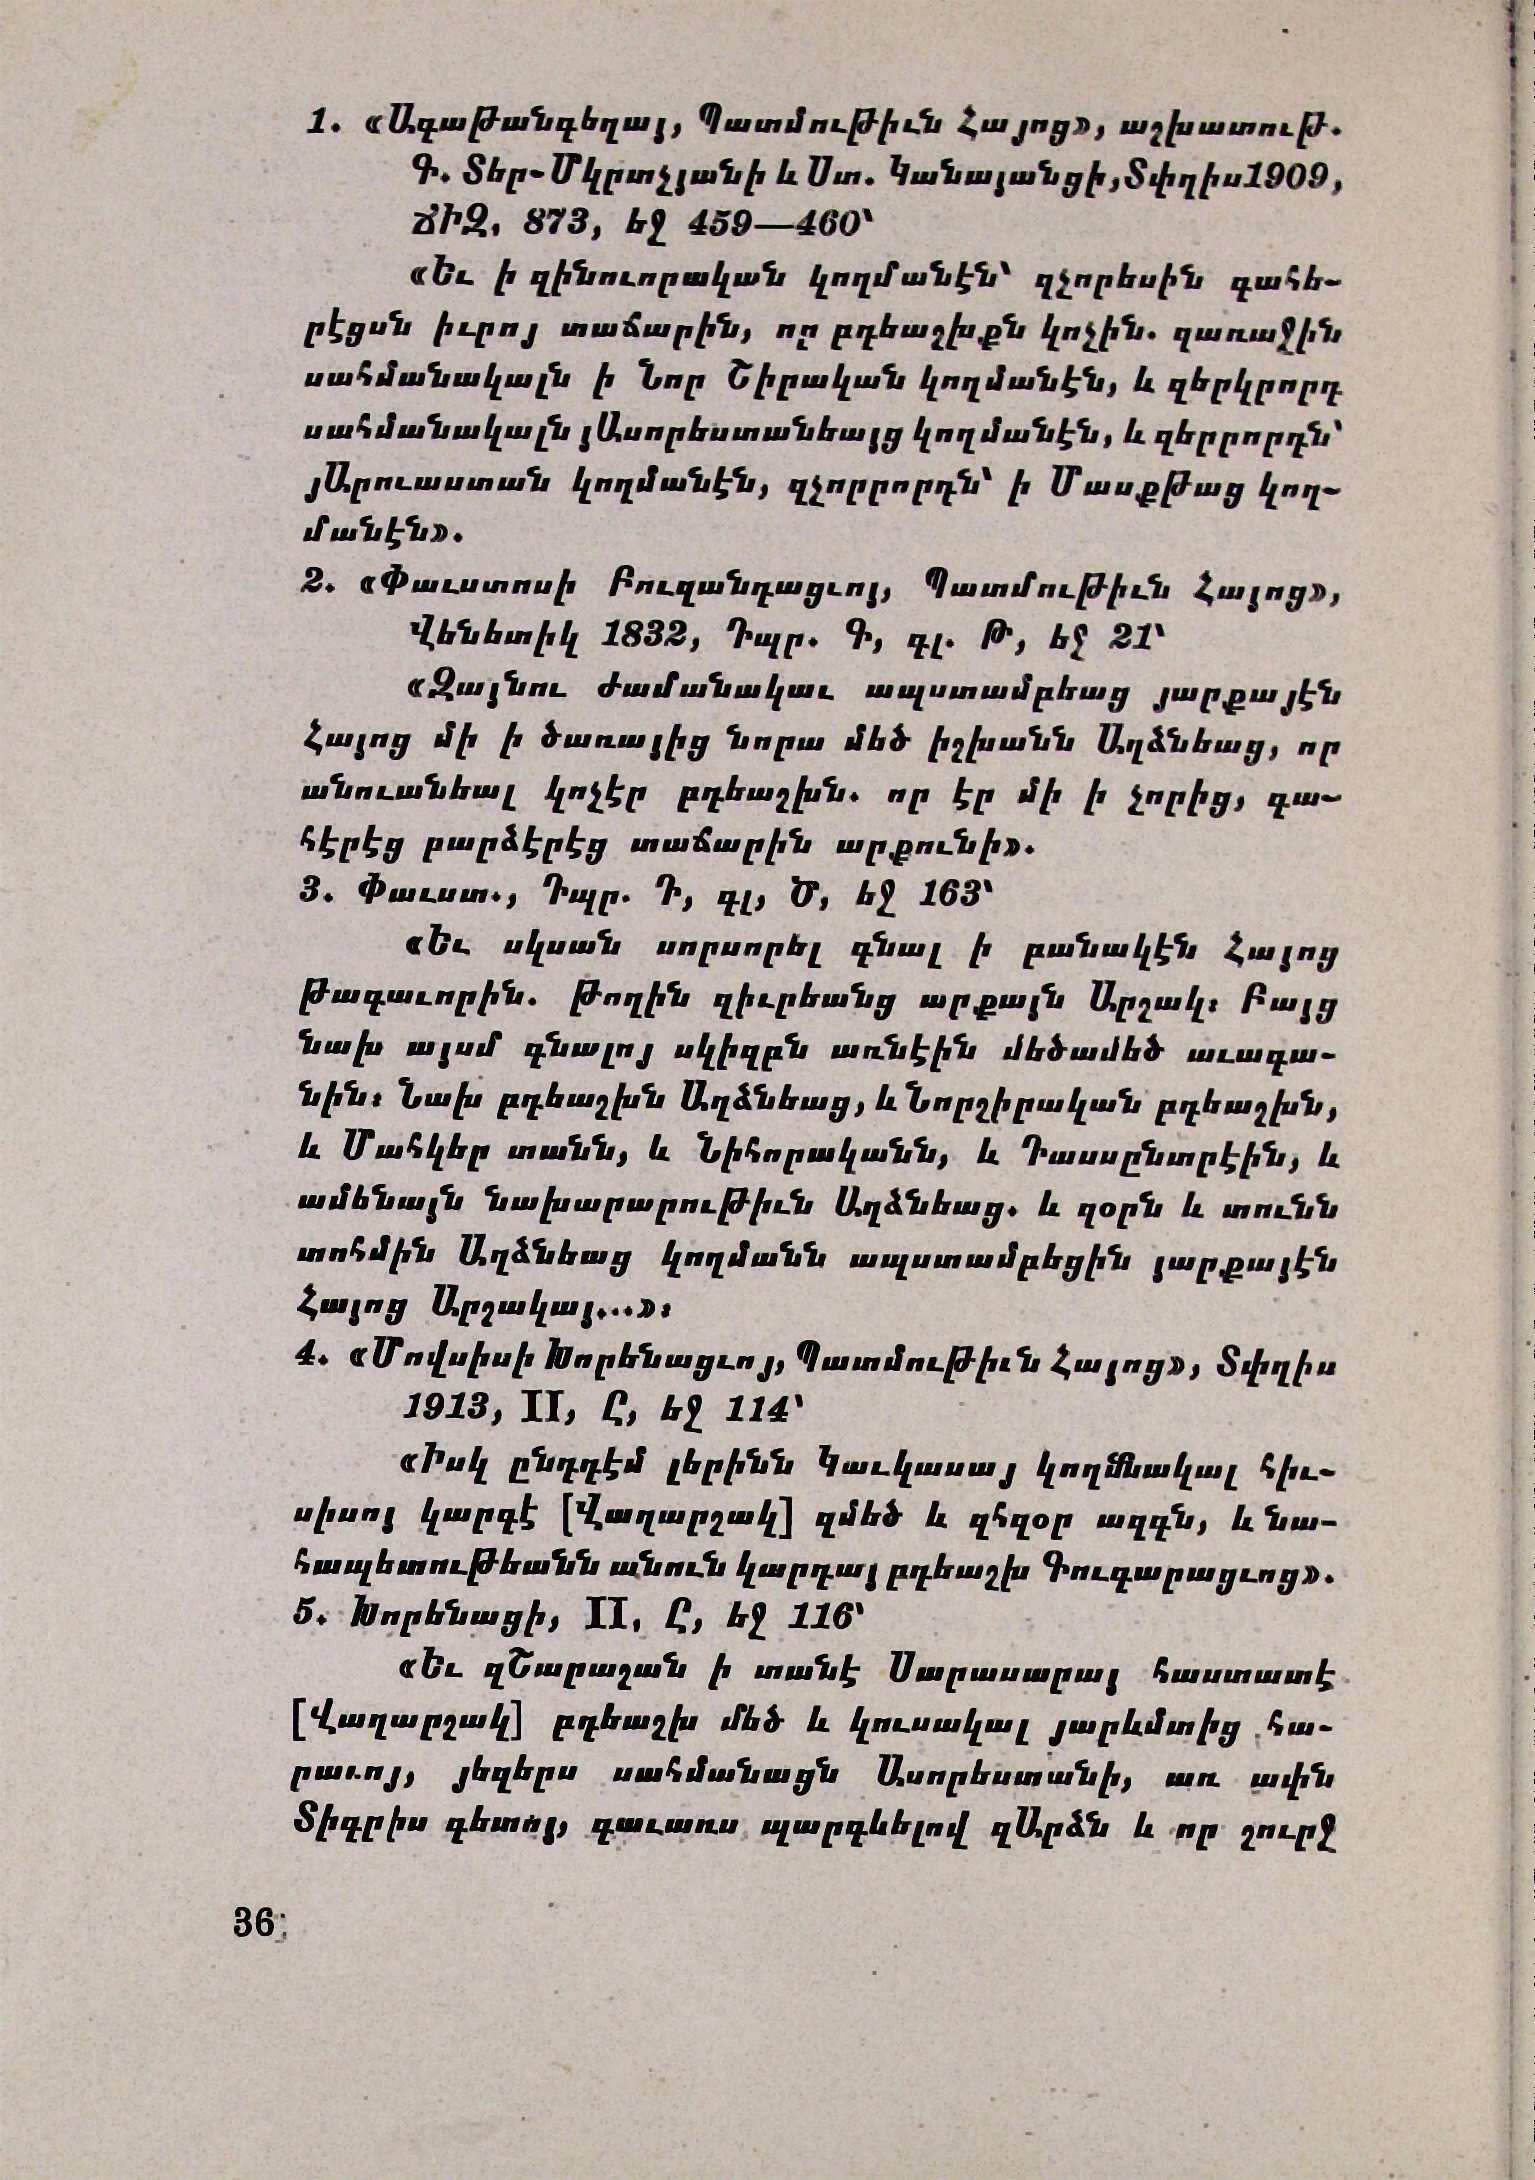 1. «Ագաթանգեղայ, Պատմութիւն Հայոց», աշխատութ.
Գ. Տեր-Մկրտչյանի և Ստ. Կանայանցի, Տփղիս 1909,
ՃԻԶ, 873, եջ 459—460՝
«Եւ ի զինուորական կողմանէն՝ զչորեսին գահե-
րէցսն իւրոյ տաճարին, որ բդեաշխքն կոչին. զառաջին
սահմանակալն ի Նոր Շիրական կողմանէն, և զերկրորդ
սահմանակալն յԱսորեստանեայց կողմանէն, և զերրորդն՝
յԱրուաստան կողմանէն, զչորրորդն՝ ի Մասքթաց կող-
մանէն».
2. «Փաւստոսի Բուզանդացւոյ, Պատմութիւն Հայոց»,
Վենետիկ 1832, Դպր. Գ, գլ. Թ, եջ 21՝
«Զայնու ժամանակաւ ապստամբեաց յարքայէն
Հայոց մի ի ծառայից նորա մեծ իշխանն Աղձնեաց, որ
անուանեալ կոչէր բդեաշխն. որ էր մի ի չորից, գա-
հէրէց բարձէրէց տաճարին արքունի».
3. Փաւստ., Դպր. Դ, գլ, Ծ, եջ 163՝
«Եւ սկսան սորսորել գնալ ի բանակէն Հայոց
թագաւորին. թողին զիւրեանց արքայն Արշակ: Բայց
նախ այսմ գնալոյ սկիզբն առնէին մեծամեծ աւագա-
նին: Նախ բդեաշխն Աղձնեաց, և Նորշիրական բդեաշխն,
և Մահկեր տանն, և Նիհորականն, և Դասսընտրէին, և
ամենայն նախարարութիւն Աղձնեաց. և զօրն և տունն
տոհմին Աղձնեաց կողմանն ապստամբեցին յարքայէն
Հայոց Արշակայ...»:
4. «Մովսիսի Խորենացւոյ, Պատմութիւն Հայոց», Տփղիս
1913, II, Ը, եջ 114՝
«Իսկ ընդդէմ լերինն Կաւկասայ կողմնակալ հիւ-
սիսոյ կարգէ [Վաղարշակ] զմեծ և զհզօր ազգն, և նա-
հապետութեանն անուն կարդայ բդեաշխ Գուգարացւոց».
5. Խորենացի, II, Ը, եջ 116՝
«Եւ զՇարաշան ի տանէ Սարասարայ հաստատէ
[Վաղարշակ] բդեաշխ մեծ և կուսակալ յարևմտից հա-
րաւոյ, յեզերս սահմանացն Ասորեստանի, առ ափն
Տիգրիս գետոյ, գաւառս պարգևելով զԱրձն և որ շուրջ
36